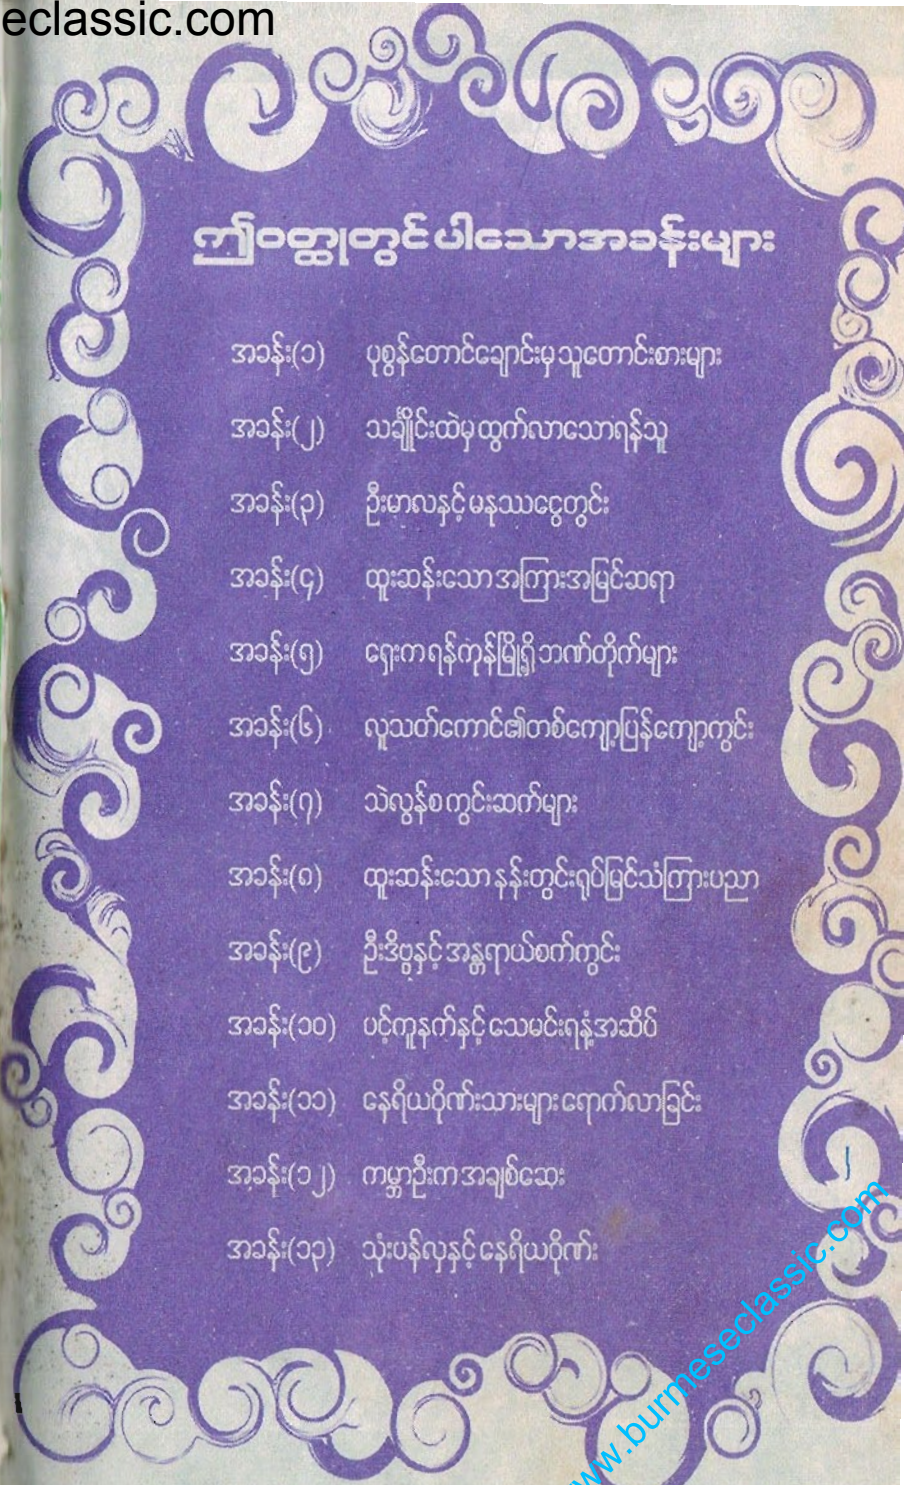 eclassic.com
ဤဝတ္ထုတွင်ပါသောအခန်းများ
အခန်း(၁) ပုစွန်တောင်ချောင်းမှသူတောင်းစားများ
အခန်း(၂) သင်္ချိုင်းထဲမှထွက်လာသောရန်သူ
အခန်း(၃) ဦးမာလနှင့်မနုဿငွေတွင်း
အခန်း(၄) ထူးဆန်းသောအကြားအမြင်ဆရာ
အခန်း(၅) ရှေးကရန်ကုန်မြို့ရှိဘဏ်တိုက်များ
အခန်း(၆) လူသတ်ကောင်၏တစ်ကျော့ပြန်ကျော့ကွင်း
အခန်း(၇) သဲလွန်စကွင်းဆက်များ
အခန်း(၈) ထူးဆန်းသောနန်းတွင်းရုပ်မြင်သံကြားပညာ
အခန်း(၉) ဦးဒိဗ္ဗနှင့်အန္တရာယ်စက်ကွင်း
အခန်း(၁၀) ပင့်ကူနက်နှင့်သေမင်းရနံ့အဆိပ်
အခန်း(၁၁) နေရိယဝိုဏ်းသားများရောက်လာခြင်း
အခန်း(၁၂) ကမ္ဘာဦးကအချစ်ဆေး
အခန်း(၁၃) သုံးပန်လှနှင့်နေရိယဝိုဏ်း
www.burmeseclassic.com